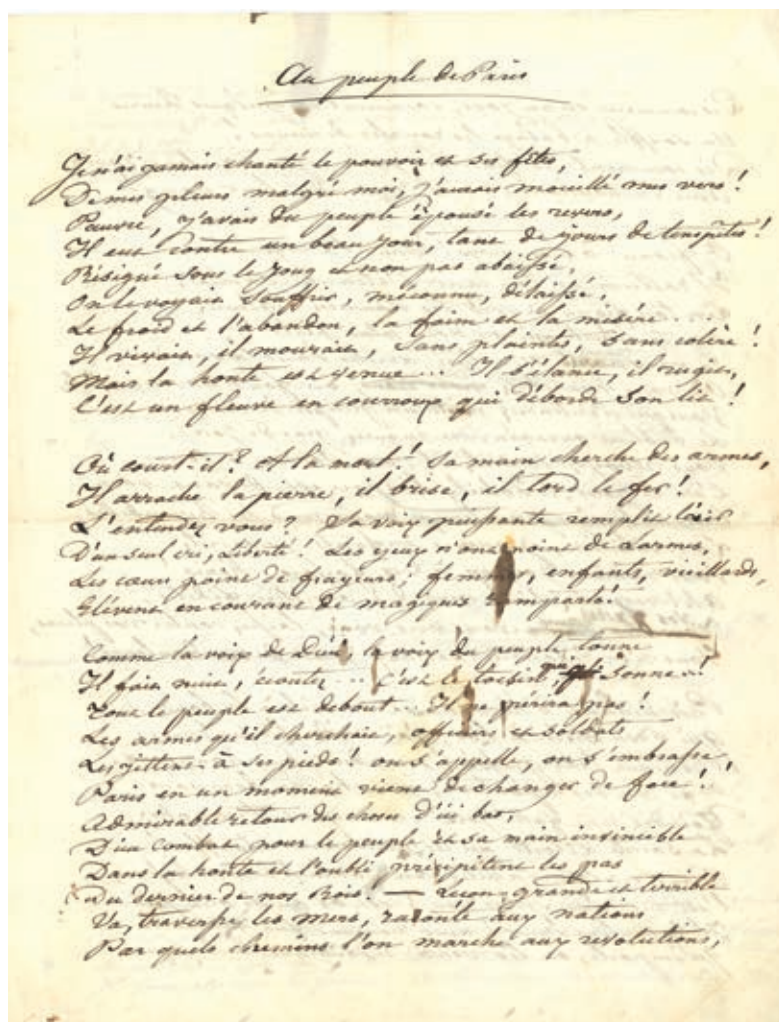 Au peuple de Paris
Je n'ai jamais chanté le pouvoir et ses fêtes,
De mes pleurs malgré moi, j'aurais mouillé mes vers !
Pauvre, j'avais du peuple épousé les revers,
Il eut contre un beau jour, tant de jours de tempêtes !
Résigné sous le joug et non pas abaissé,
On le voyait souffrir, méconnu, délaissé,
Le froid et l'abandon, la faim et la misère ...
Il vivait, il mourait, sans plaintes, sans colère !
Mais la honte est venue ... Il s'élance, il rugit,
C'est un fleuve en courroux qui déborde son lit !
Où court-il ? A la mort ! Sa main cherche des armes,
Il arrache la pierre, il brise, il tord le fer !
L'entendez vous ? Sa voix puissante remplit l'air
D'un seul cri, Liberté ! Les yeux n'ont point de larmes,
Les cœurs point de frayeurs ; femmes, enfants, vieillards,
Elèvent en courant de magiques remparts !
Comme la voix de Dieu, la voix du peuple tonne
Il fait nuit, écoutez ... C'est le tocsin qui sonne !
Tout le peuple est debout .. Il ne périra pas !
Les armes qu'il cherchait, officiers et soldats
Les jettent à ses pieds ! on s'appelle, on s'embrasse,
Paris en un moment vient de changer de face !
Admirable retour des choses d'ici bas,
Dieu combat pour le peuple et sa main invincible
Dans la honte et l'oubli précipitent les pas
Du dernier de nos Rois. — Leçon grande et terrible
Va, traverse les mers, raconte aux nations
Par quels chemins l'on marche aux revolutions,